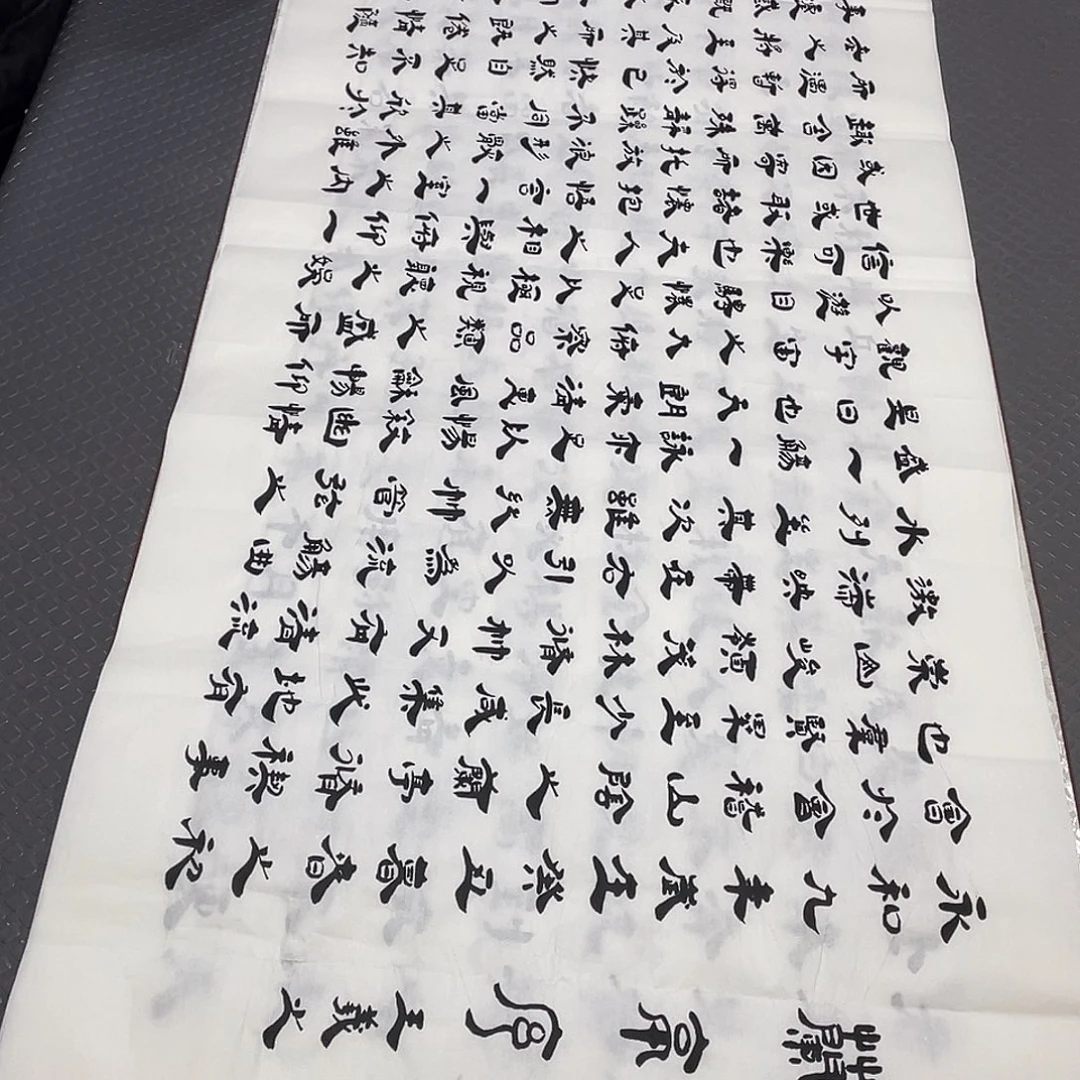 蘭亭序 王羲之
永和九年歲在癸丑暮春之初
會於會稽山陰之蘭亭脩禊事
也羣賢畢至少長咸集此地有
崇山峻嶺茂林脩竹又有清流
激湍映帶左右引以為流觴曲
水列坐其次雖無絲竹管絃之
盛一觴一詠亦足以暢敘幽情
是日也天朗氣清惠風和暢仰
觀宇宙之大俯察品類之盛所
以遊目騁懷足以極視聽之娛
信可樂也夫人之相與俯仰一
世或取諸懷抱悟言一室之內
或因寄所託放浪形骸之外雖
趣舍萬殊靜躁不同當其欣於
所遇暫得於己快然自足不知
老之將至及其所之既倦情隨
事遷